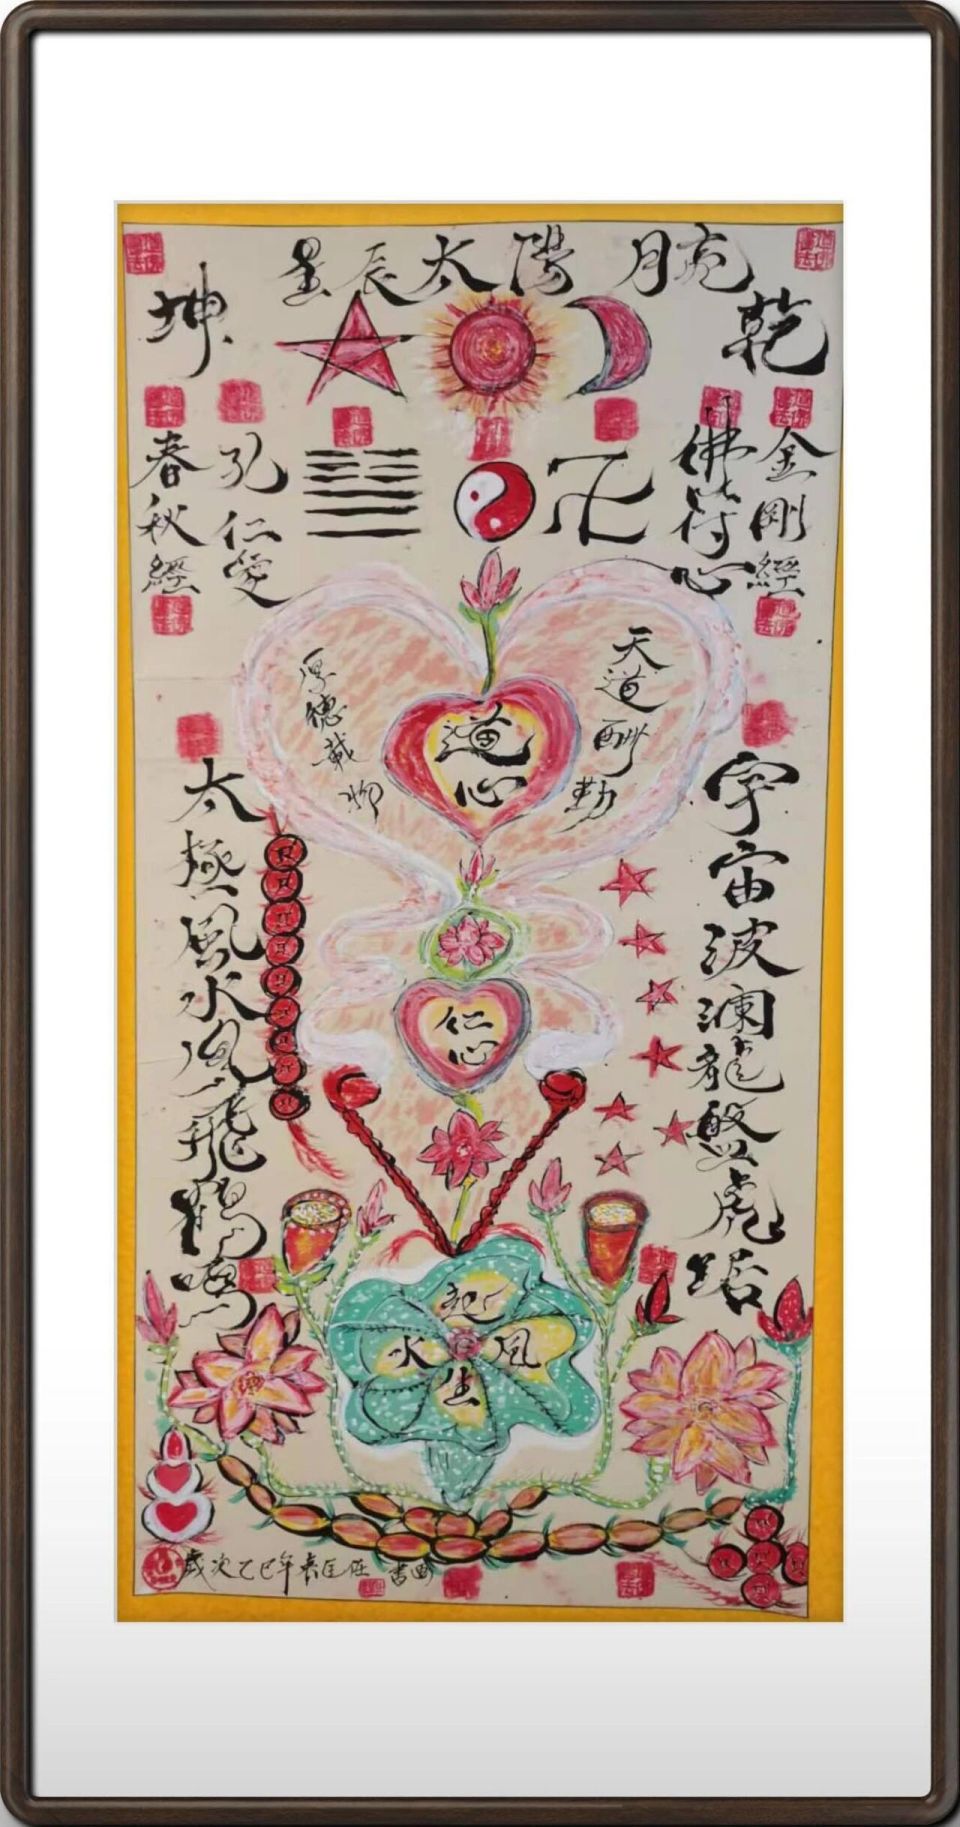 星辰太陽月亮
乾
坤
金剛經
佛符心
孔仁愛
春秋經
天道酬勤
厚德載物
道心
仁心
宇宙波澜龍盤虎踞
太極風水鳳飛鶴鳴
風生水起
歲次乙巳年 書画